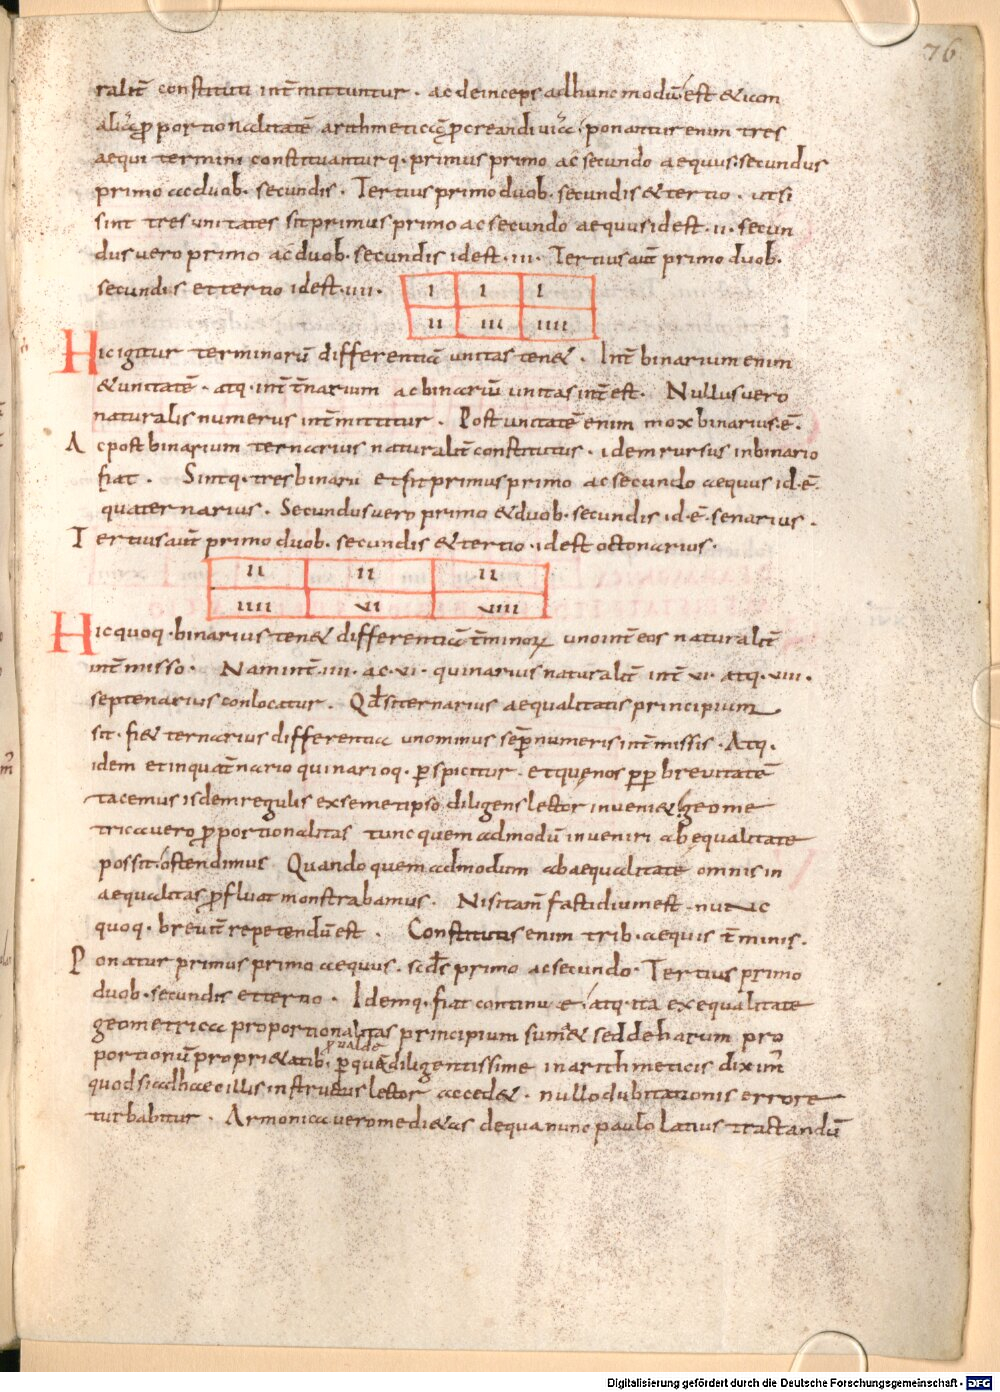 76
ralit̄ constituti int̄mittuntur · ac deinceps ad hunc modū est & iam
alia ꝓportionalitatē arithmeticā ꝓcreandi via · ponantur enim tres
aequi termini constituantur q· primus primo ac secundo aequus· secundus
primo ac duob· secundis · Tertius primo duob· secundis & tertio · ut si
sint tres unitates sit primus primo ac secundo aequus id est ·ii· secun
dus vero primo ac duob· secundis id est ·iii· Tertius aūt primo duob·
secundis et tertio id est ·iiii·
I I I
II III IIII
Hic igitur terminorū differentiā unitas ten& · Int̄ binarium enim
& unitatē · atq· int̄ t̄narium ac binariū unitas int̄est · Nullus vero
naturalis numerus int̄mittitur · Post unitatē enim mox binarius ·ē·
Ac post binarium ternarius naturalit̄ constitutus · idem rursus in binario
fiat · Sintq· tres binarii et sit primus primo ac secundo aequus id ·ē·
quaternarius · Secundus vero primo & duob· secundis id ·ē· senarius ·
Tertius aūt primo duob· secundis & tertio · id est octonarius ·
II II II
IIII VI VIII
Hic quoq· binarius ten& differentiā t̄minoꝝ uno int̄ eos naturalit̄
int̄misso · Nam int̄ ·iiii· ac ·vi· quinarius naturalit̄ int̄ vi· atq· viii·
septenarius conlocatur · Qd̄ si ternarius aequalitatis principium
sit · fi& ternarius differentia uno minus sēp numeris int̄missis · Atq·
idem et in quat̄nario quinarioq· ꝑspicitur · et que nos ꝓp brevitatē
tacemus isdem regulis ex semetipso diligens lector inveni& geome
trica vero ꝓportionalitas tunc quem admodū inveniri ab equalitate
possit ostendimus Quando quem admodum ab aequalitate omnis in
aequalitas ꝓfluat monstrabamus · Nisi tam̄ fastidium est · nunc
quoq· brevit̄ repetendū est · Constitutis enim trib· aequis t̄minis ·
Ponatur primus primo aequus · scd̄s primo ac secundo · Tertius primo
duob· secundis et tertio · Idemq· fiat continue · atq· ita ex equalitate
geometrica proportionalitas principium sum& sed de harum pro
portionū propri&atib· ꝑquā diligentissime in arithmeticis diximꝰ
quod si ad haec illis instructus lector acced& · nullo dubitationis errore
turbabitur · Armonica vero medi&as de qua nunc paulo latius tractandū
Digitalisierung gefördert durch die Deutsche Forschungsgemeinschaft - DFG